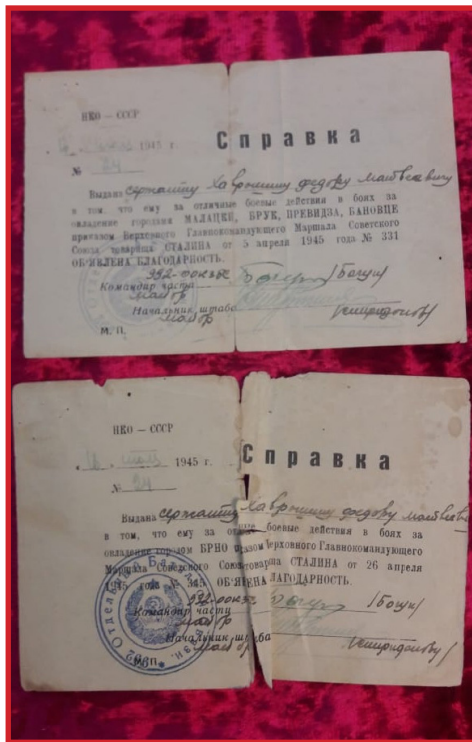 НКО — СССР
1945 г.
Справка
№ 24
Выдана сержанту Лаврышину Федору Матвеевичу
в том, что ему за отличные боевые действия в боях за
овладение городами МАЛАЦКЕ, БРУК, ПРЕВИДЗА, БАНОВЦЕ
приказом Верховного Главнокомандующего Маршала Советского
Союза товарища СТАЛИНА от 5 апреля 1945 года № 331
ОБ'ЯВЛЕНА БЛАГОДАРНОСТЬ.
Командир части
майор
Начальник штаба
майор /Спиридонов/
М. П.
НКО — СССР
1945 г.
Справка
№ 24
Выдана сержанту Лаврышину Федору Матвеевичу
в том, что ему за боевые действия в боях за
овладение городом БРНО Верховного Главнокомандующего
Маршала Советского СТАЛИНА от 26 апреля
1945 года № 345 ОБ'ЯВЛЕНА
Командир части
майор
Начальник штаба
майор /Спиридонов/
М. П.